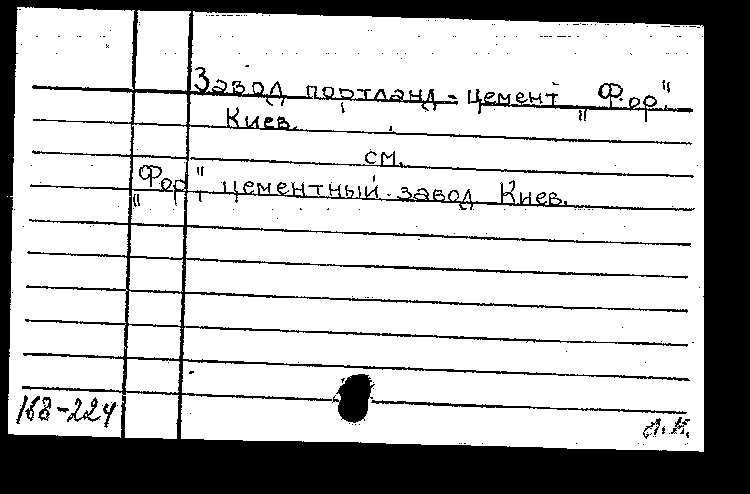 Завод портланд-цемент „Фор".
Киев.
см.
„Фор" цементный завод Киев.
168-224
Л.К.